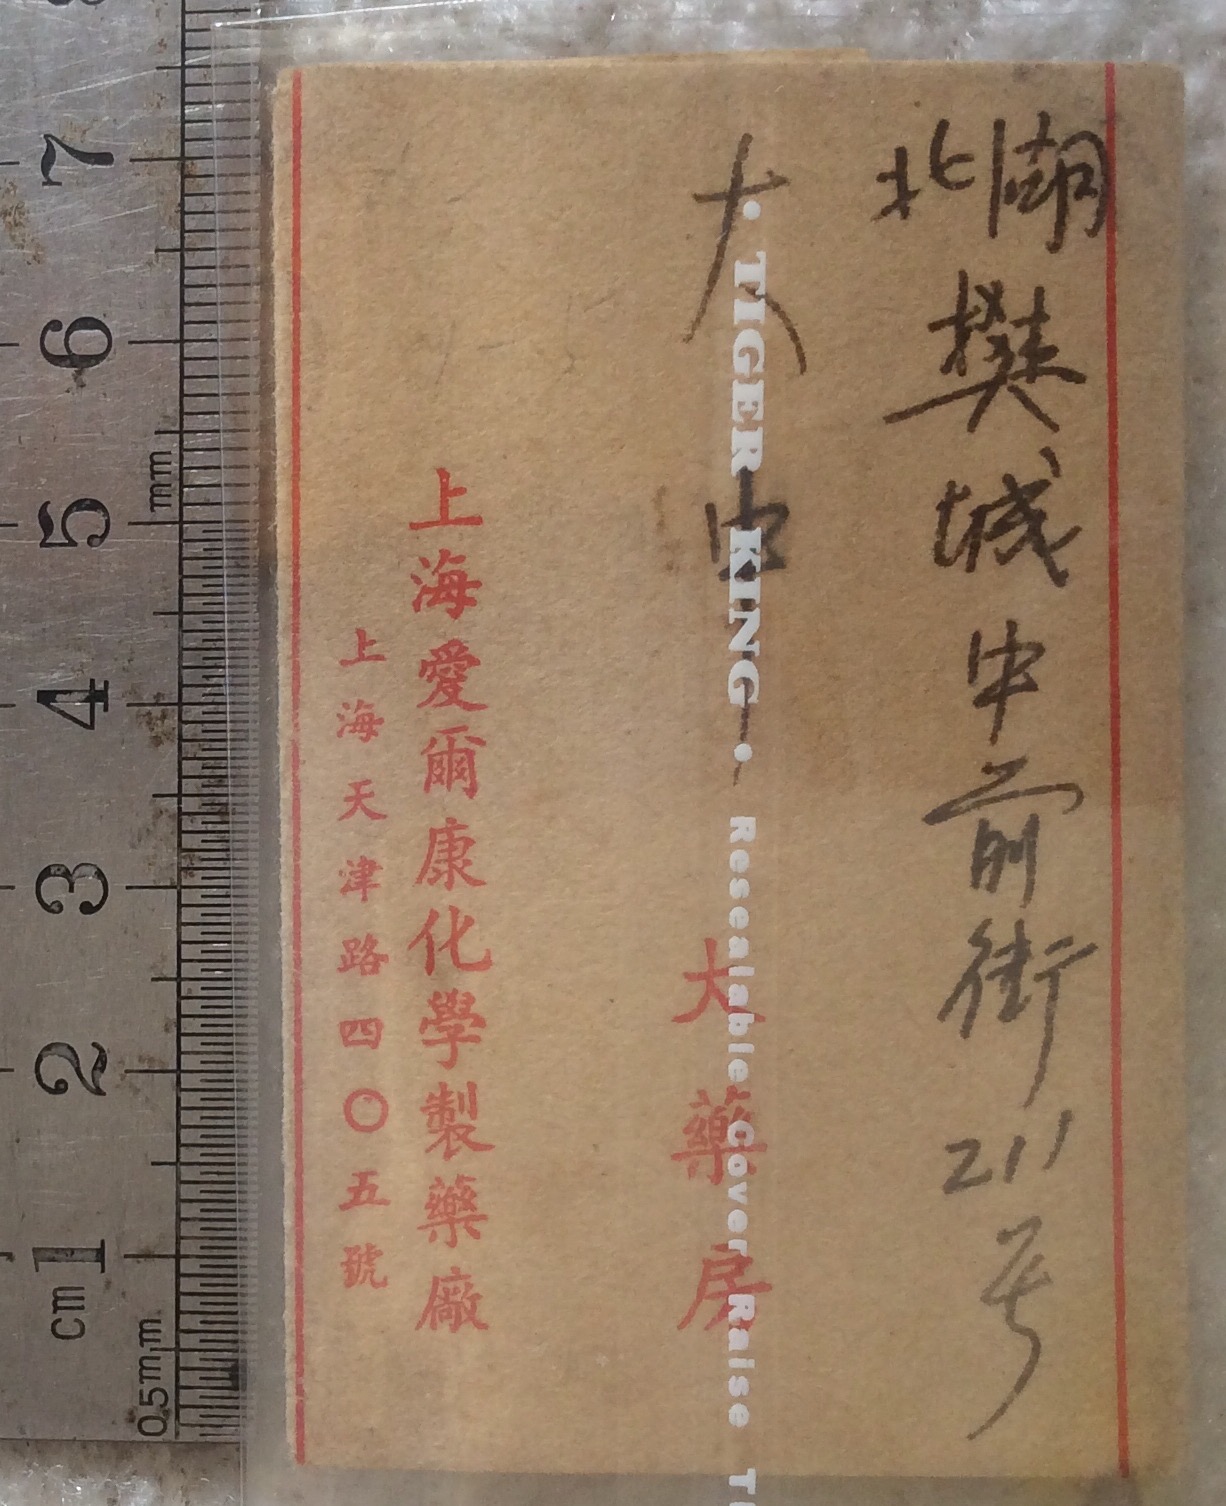 湖北
樊城中前街211号
大中
大藥房
上海愛爾康化學製藥廠
上海天津路四〇五號
· TIGER KING · Resealable Cover Raise
7
6
5
4
3
2
1
mm
cm
0.5mm